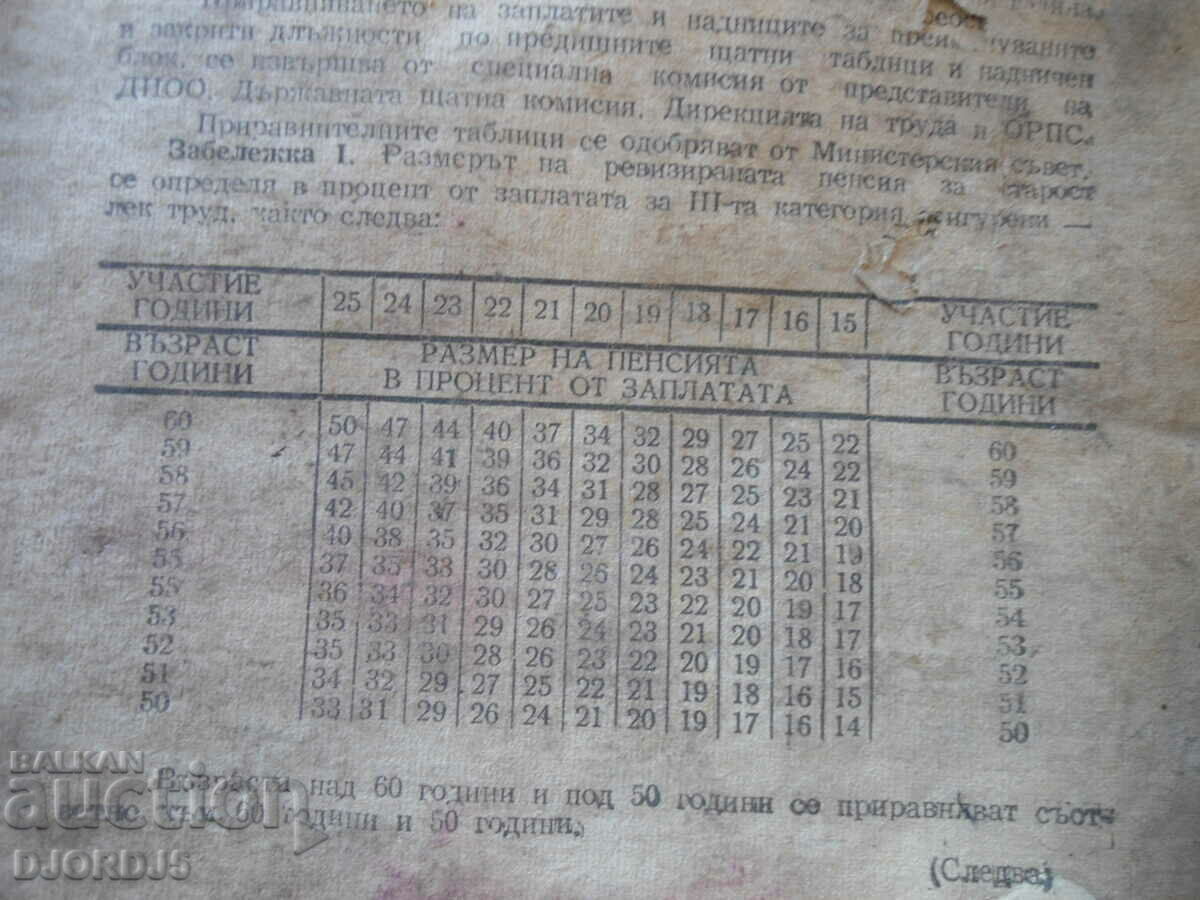 на заплатите и надниците за
и закрити длъжности по предишните щатни таблици и надничен
блок, се извършва от специална комисия от представители на
ДИОО, Държавната щатна комисия, Дирекцията на труда и ОРПС.
Приравнителните таблици се одобряват от Министерския съвет.
Забележка I. Размерът на ревизираната пенсия за старост
се определя в процент от заплатата за III-та категория осигурени —
лек труд, както следва:
УЧАСТИЕ ГОДИНИ 25 24 23 22 21 20 19 18 17 16 15 УЧАСТИЕ ГОДИНИ
ВЪЗРАСТ ГОДИНИ РАЗМЕР НА ПЕНСИЯТА В ПРОЦЕНТ ОТ ЗАПЛАТАТА ВЪЗРАСТ ГОДИНИ
60 50 47 44 40 37 34 32 29 27 25 22 60
59 47 44 41 39 36 32 30 28 26 24 22 59
58 45 42 39 36 34 31 28 27 25 23 21 58
57 42 40 37 35 31 29 28 25 24 21 20 57
56 40 38 35 32 30 27 26 24 22 21 19 56
55 37 35 33 30 28 26 24 23 21 20 18 55
55 36 34 32 30 27 25 23 22 20 19 17 54
53 35 33 31 29 26 24 23 21 20 18 17 53
52 35 33 30 28 26 23 22 20 19 17 16 52
51 34 32 29 27 25 22 21 19 18 16 15 51
50 33 31 29 26 24 21 20 19 17 16 14 50
Възрасти над 60 години и под 50 години се приравняват съот-
ветно към 60 години и 50 години.
(Следва)
BALKAN
auction
DJORDJ5